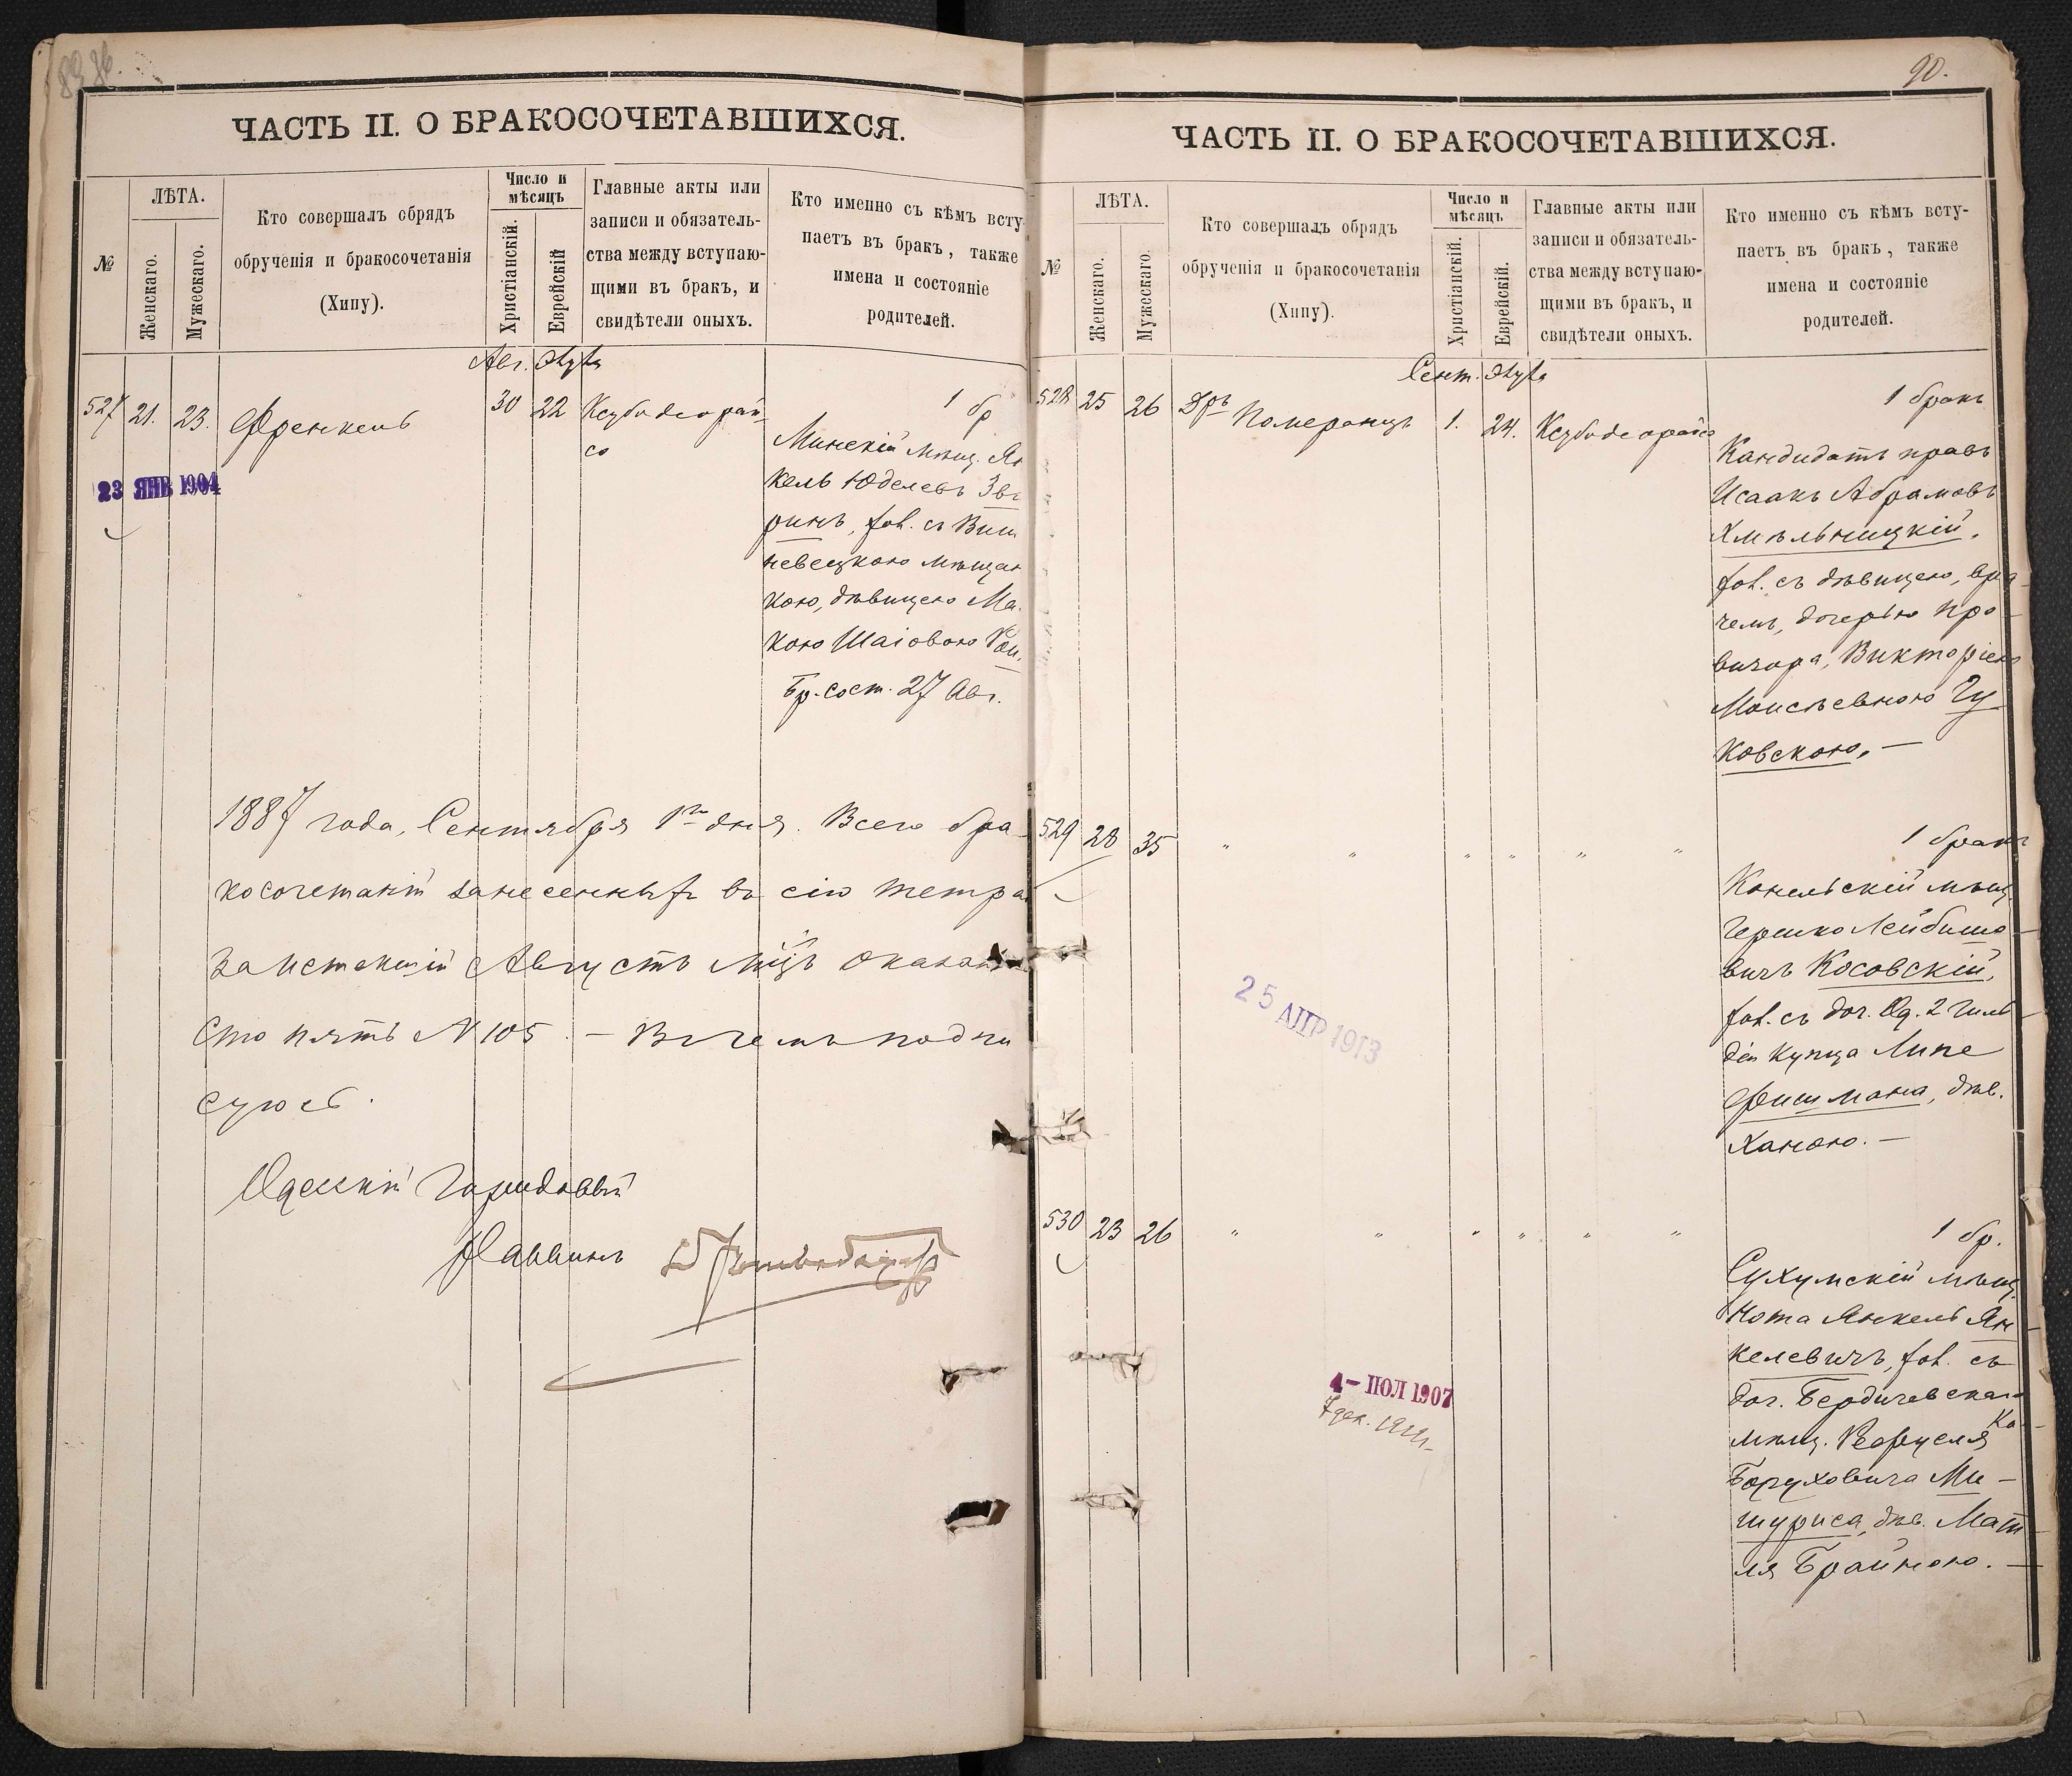 ЧАСТЬ II. О БРАКОСОЧЕТАВШИХСЯ.
№
ЛѢТА.
Женскаго.
Мужескаго.
Кто совершалъ обрядъ
обрученія и бракосочетанія
(Хипу).
Число и
мѣсяцъ
Христіанскій.
Еврейскій
Главные акты или
записи и обязатель-
ства между вступаю-
щими въ бракъ, и
свидѣтели оныхъ.
Кто именно съ кѣмъ всту
паетъ въ бракъ, также
имена и состояніе
родителей.
Авг. Элулъ
527 21. 23. Френкель 30 22 Ксубо деорай-
со
1 бр
Минскій мѣщ. Ян
кель Юделевъ Зв
ринъ, fol. съ Виш
невецкою мѣщан
кою, дѣвицею Ма
кою Шаіовою
Бр. сост. 27 Авг.
23 ЯНВ 1904
1887 года, Сентября 1го дня. Всего бра-
косочетаній занесенныхъ въ сію тетра
за истекшій Августъ мцъ оказал
Сто пять N 105. — Въ чемъ подпи
суюсь.
Одесскій Городовый
Раввинъ
ЧАСТЬ II. О БРАКОСОЧЕТАВШИХСЯ.
90.
№
ЛѢТА.
Женскаго.
Мужескаго.
Кто совершалъ обрядъ
обрученія и бракосочетанія
(Хипу).
Число и
мѣсяцъ
Христіанскій.
Еврейскій.
Главные акты или
записи и обязатель-
ства между вступаю-
щими въ бракъ, и
свидѣтели оныхъ.
Кто именно съ кѣмъ всту-
паетъ въ бракъ, также
имена и состояніе
родителей.
Сент. Элулъ
528 25 26 Дръ Померанцъ 1. 24. Ксубо деорайсо
1 бракъ
Кандидатъ правъ
Исаакъ Абрамовъ
Хмѣльницкій,
fol. съ дѣвицею, вра-
чемъ, дочерью про-
визора, Викторіею
Моисѣевною Гу
ковскою. —
529 28 35 " " " " " "
1 бракъ
Конельскій мѣщ.
Гершко Лейбишо-
вичъ Косовскій,
fol. съ доч. Од. 2 гиль-
діи купца Липе
Фишмана, дѣв.
Ханою. —
25 АПР 1913
530 23 26 " " " " " "
1 бр.
Сухумскій мѣщ.
Нота Янкель Ян-
келевичъ, fol. съ
доч. Бердичевскаго
мѣщ. Рефуеля Ка-
Боруховича Ми-
шуриса, дѣв. Мат-
ля Брайною. —
4 - ІЮЛ 1907